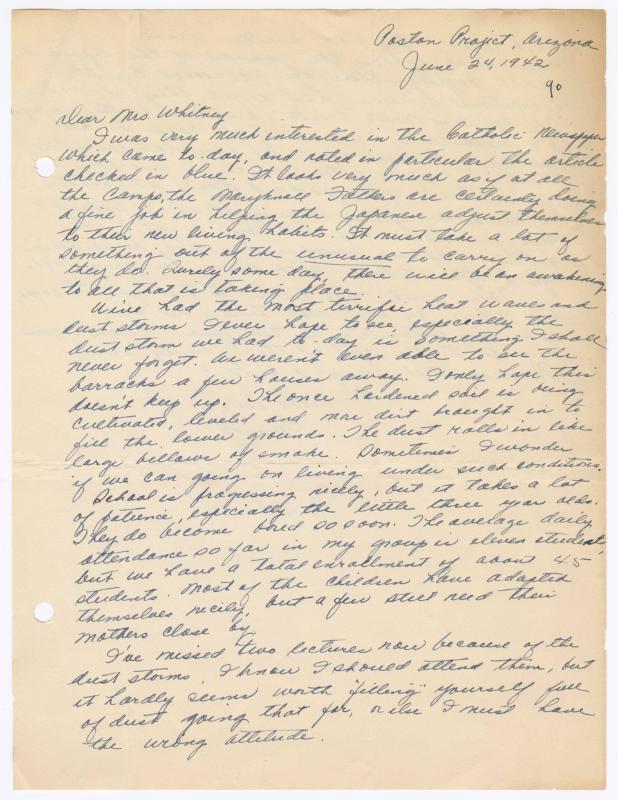 Poston Project, Arizona
June 24, 1942
90
Dear Mrs. Whitney
I was very much interested in the Catholic Newspaper
which came to-day, and noted in perticular the article
checked in blue. It looks very much as if at all
the camps, the Maryknoll Fathers are certainly doing
a fine job in helping the Japanese adjust themselves
to their new living habits. It must take a lot of
something out of the unusual to carry on as
they do. Surely some day, there will be an awakening
to all that is taking place.
We've had the most terrific heat waves and
dust storms I ever hope to see, especially the
dust storm we had to-day is something I shall
never forget. We weren't even able to see the
barracks a few houses away. I only hope this
doesn't keep up. The once hardened soil is being
cultivated, leveled and more dirt brought in to
fill the lower grounds. The dust rolls in like
large billows of smoke. Sometimes I wonder
if we can going on living under such conditions.
School is progessing nicely, but it takes a lot
of patience, especially the little three year olds.
They do become bored so soon. The average daily
attendance so far in my group is eleven students,
but we have a total enrollment of about 45
students. Most of the children have adapted
themselves nicely, but a few still need their
mothers close by.
I've missed two lectures now because of the
dust storms. I know I should attend them, but
it hardly seems worth "filling" yourself full
of dust going that far, or else I must have
the wrong attitude.